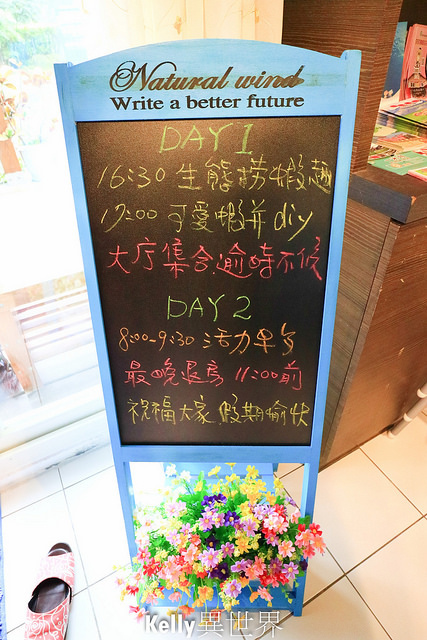 Natural wind
Write a better future
DAY 1
16:30 生態撈蝦趣
17:00 可愛蝦餅 diy
大厅集合逾時不候
DAY 2
8:00-9:30 活力早餐
最晚退房 11:00前
祝福大家 假期愉快
Kelly異世界